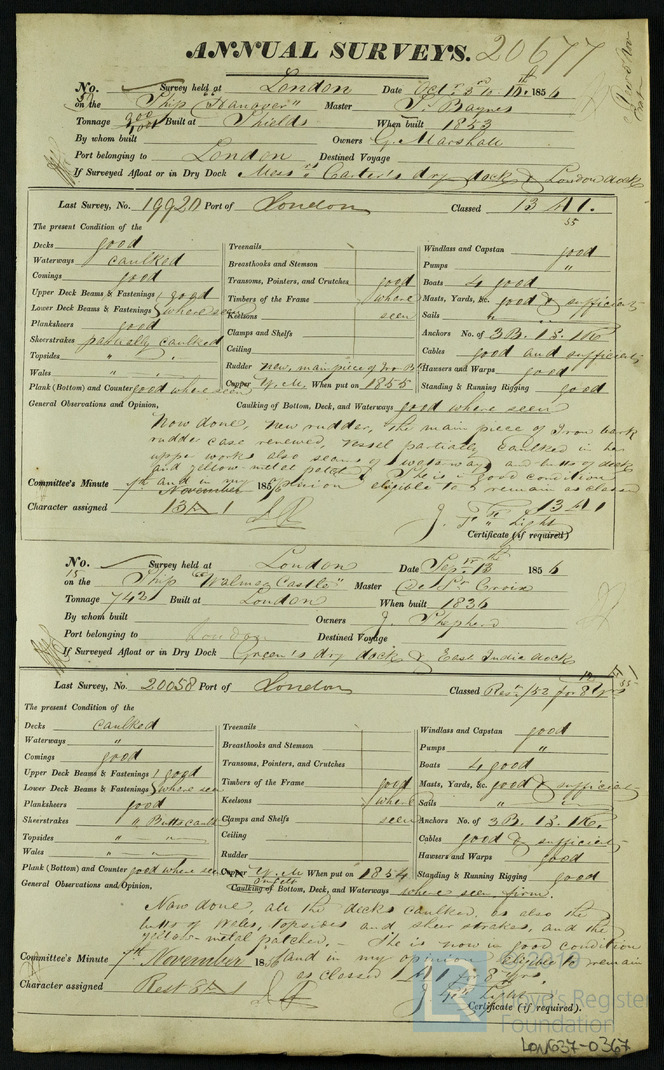 ANNUAL SURVEYS. 20677
No. Survey held at London Date Oct 3rd & 10th 1856
on the Ship "Hanover" Master Baynes
Tonnage Built at Shields When built 1853
By whom built Owners G. Marshall
Port belonging to London Destined Voyage
If Surveyed Afloat or in Dry Dock Mess rs Carter's dry dock & London dock
Last Survey, No. 19920 Port of London Classed 13 A 1. 55
The present Condition of the
Decks good Treenails Windlass and Capstan good
Waterways caulked Breasthooks and Stemson Pumps "
Comings good Transoms, Pointers, and Crutches good Boats 4 good
Upper Deck Beams & Fastenings } good Timbers of the Frame where Masts, Yards, &c. good & sufficient
Lower Deck Beams & Fastenings } where seen Keelsons seen Sails "
Planksheers good Clamps and Shelfs Anchors No. of 3B. 1S. 1K.
Sheerstrakes partially caulked Ceiling Cables good and sufficient
Topsides " " Rudder New, main piece of Iron Bk Hawsers and Warps good
Wales " " Copper Y. M. When put on 1855 Standing & Running Rigging good
Plank (Bottom) and Counter good where seen
General Observations and Opinion, Caulking of Bottom, Deck, and Waterways good where seen
Now done, new rudder, the main piece of Iron bark
rudder case renewed, vessel partially caulked in her
upper works also seams of waterways and butts of deck
and yellow metal patch'd She is in good condition
Committee's Minute 7th November 1856 and in my opinion eligible to remain as classed
13 A 1
Character assigned 13 A 1 J. Light
Certificate (if required)
No. Survey held at London Date Sep. 1856
on the Ship "Walmer Castle" Master De St Croix
Tonnage 742 Built at London When built 1836
By whom built Owners J. Shepherd
Port belonging to London Destined Voyage
If Surveyed Afloat or in Dry Dock Green's dry dock & East India dock
Last Survey, No. 20058 Port of London Classed Res. 1/52 for 8 Yrs
The present Condition of the
Decks caulked Treenails Windlass and Capstan good
Waterways " Breasthooks and Stemson Pumps "
Comings good Transoms, Pointers, and Crutches Boats 4 good
Upper Deck Beams & Fastenings } good Timbers of the Frame good Masts, Yards, &c. good & sufficient
Lower Deck Beams & Fastenings } where seen Keelsons where Sails "
Planksheers good Clamps and Shelfs seen Anchors No. of 3B. 1S. 1K.
Sheerstrakes " Butts caulk Ceiling Cables good & sufficient
Topsides " " Rudder Hawsers and Warps good
Wales " " Copper Y. M When put on 1854 Standing & Running Rigging good
Plank (Bottom) and Counter good where seen
General Observations and Opinion, Caulking of Bottom, Deck, and Waterways where seen firm.
Now done, all the decks caulked, as also the
butts of Wales, topsides and sheer strakes, and the
yellow metal patched. - She is now in good condition
Committee's Minute 7th November 1856 and in my opinion eligible to remain
as classed A 1 for 8 Yrs,
Character assigned Rest 8 A 1 J. Light
Certificate (if required).
© 2019
Lloyd's Register
Foundation
LON637-0367